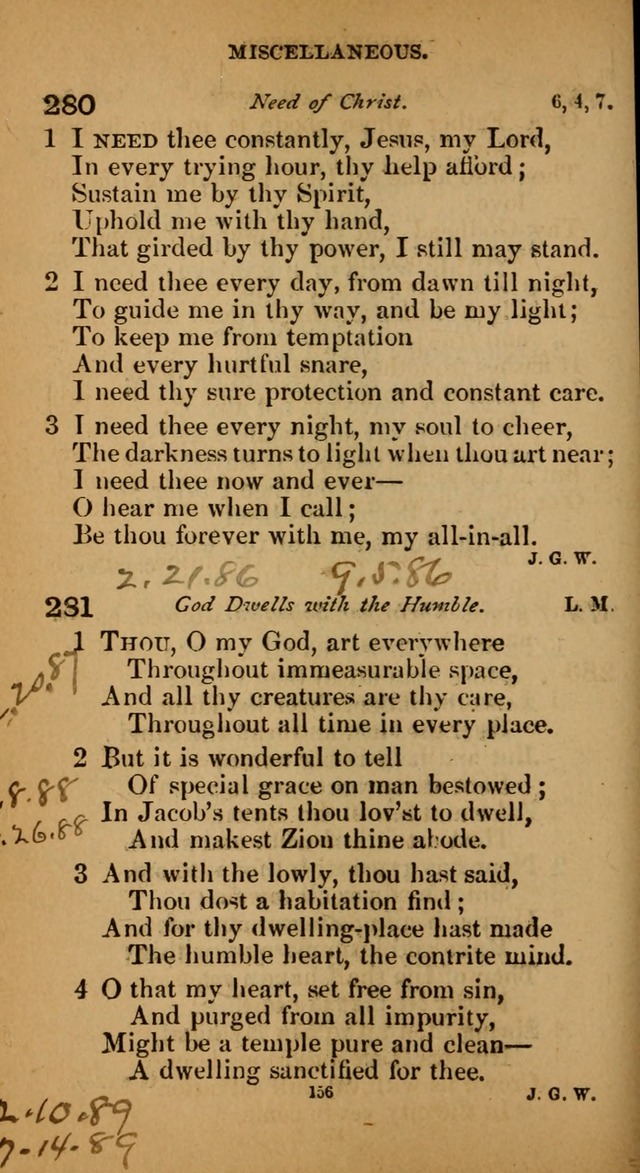 MISCELLANEOUS.
280 Need of Christ. 6, 4, 7.
1 I NEED thee constantly, Jesus, my Lord,
In every trying hour, thy help afford;
Sustain me by thy Spirit,
Uphold me with thy hand,
That girded by thy power, I still may stand.
2 I need thee every day, from dawn till night,
To guide me in thy way, and be my light;
To keep me from temptation
And every hurtful snare,
I need thy sure protection and constant care.
3 I need thee every night, my soul to cheer,
The darkness turns to light when thou art near;
I need thee now and ever—
O hear me when I call;
Be thou forever with me, my all-in-all.
J. G. W.
2.21.86 9.5.86
281 God Dwells with the Humble. L. M.
1 THOU, O my God, art everywhere
Throughout immeasurable space,
And all thy creatures are thy care,
Throughout all time in every place.
2 But it is wonderful to tell
Of special grace on man bestowed;
8.88
In Jacob's tents thou lov'st to dwell,
.26.88
And makest Zion thine abode.
3 And with the lowly, thou hast said,
Thou dost a habitation find;
And for thy dwelling-place hast made
The humble heart, the contrite mind.
4 O that my heart, set free from sin,
And purged from all impurity,
Might be a temple pure and clean—
A dwelling sanctified for thee.
156 J. G. W.
2.10.89
7-14-89